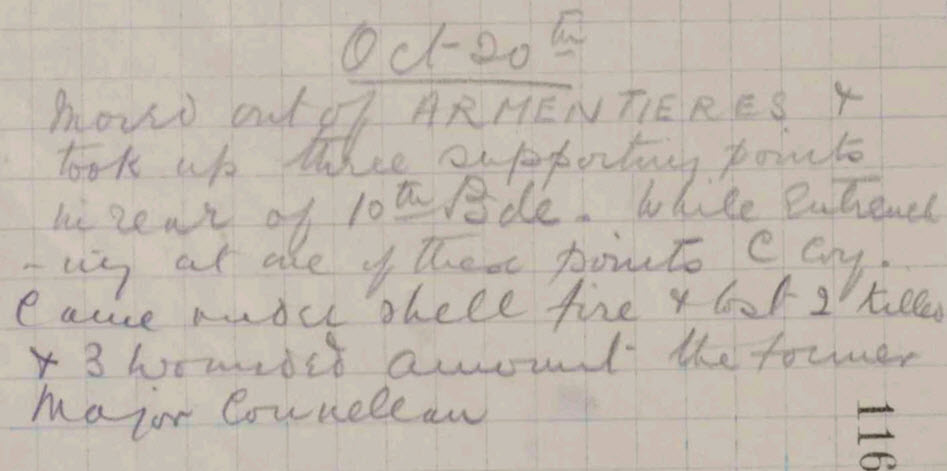 Oct-20th
Moved out of ARMENTIERES &
took up three supporting points
in rear of 10th Bde. While Entrench
-ing at one of these points C Coy.
Came under shell fire & lost 2 Killed
& 3 wounded amount the former
Major Connellan
116